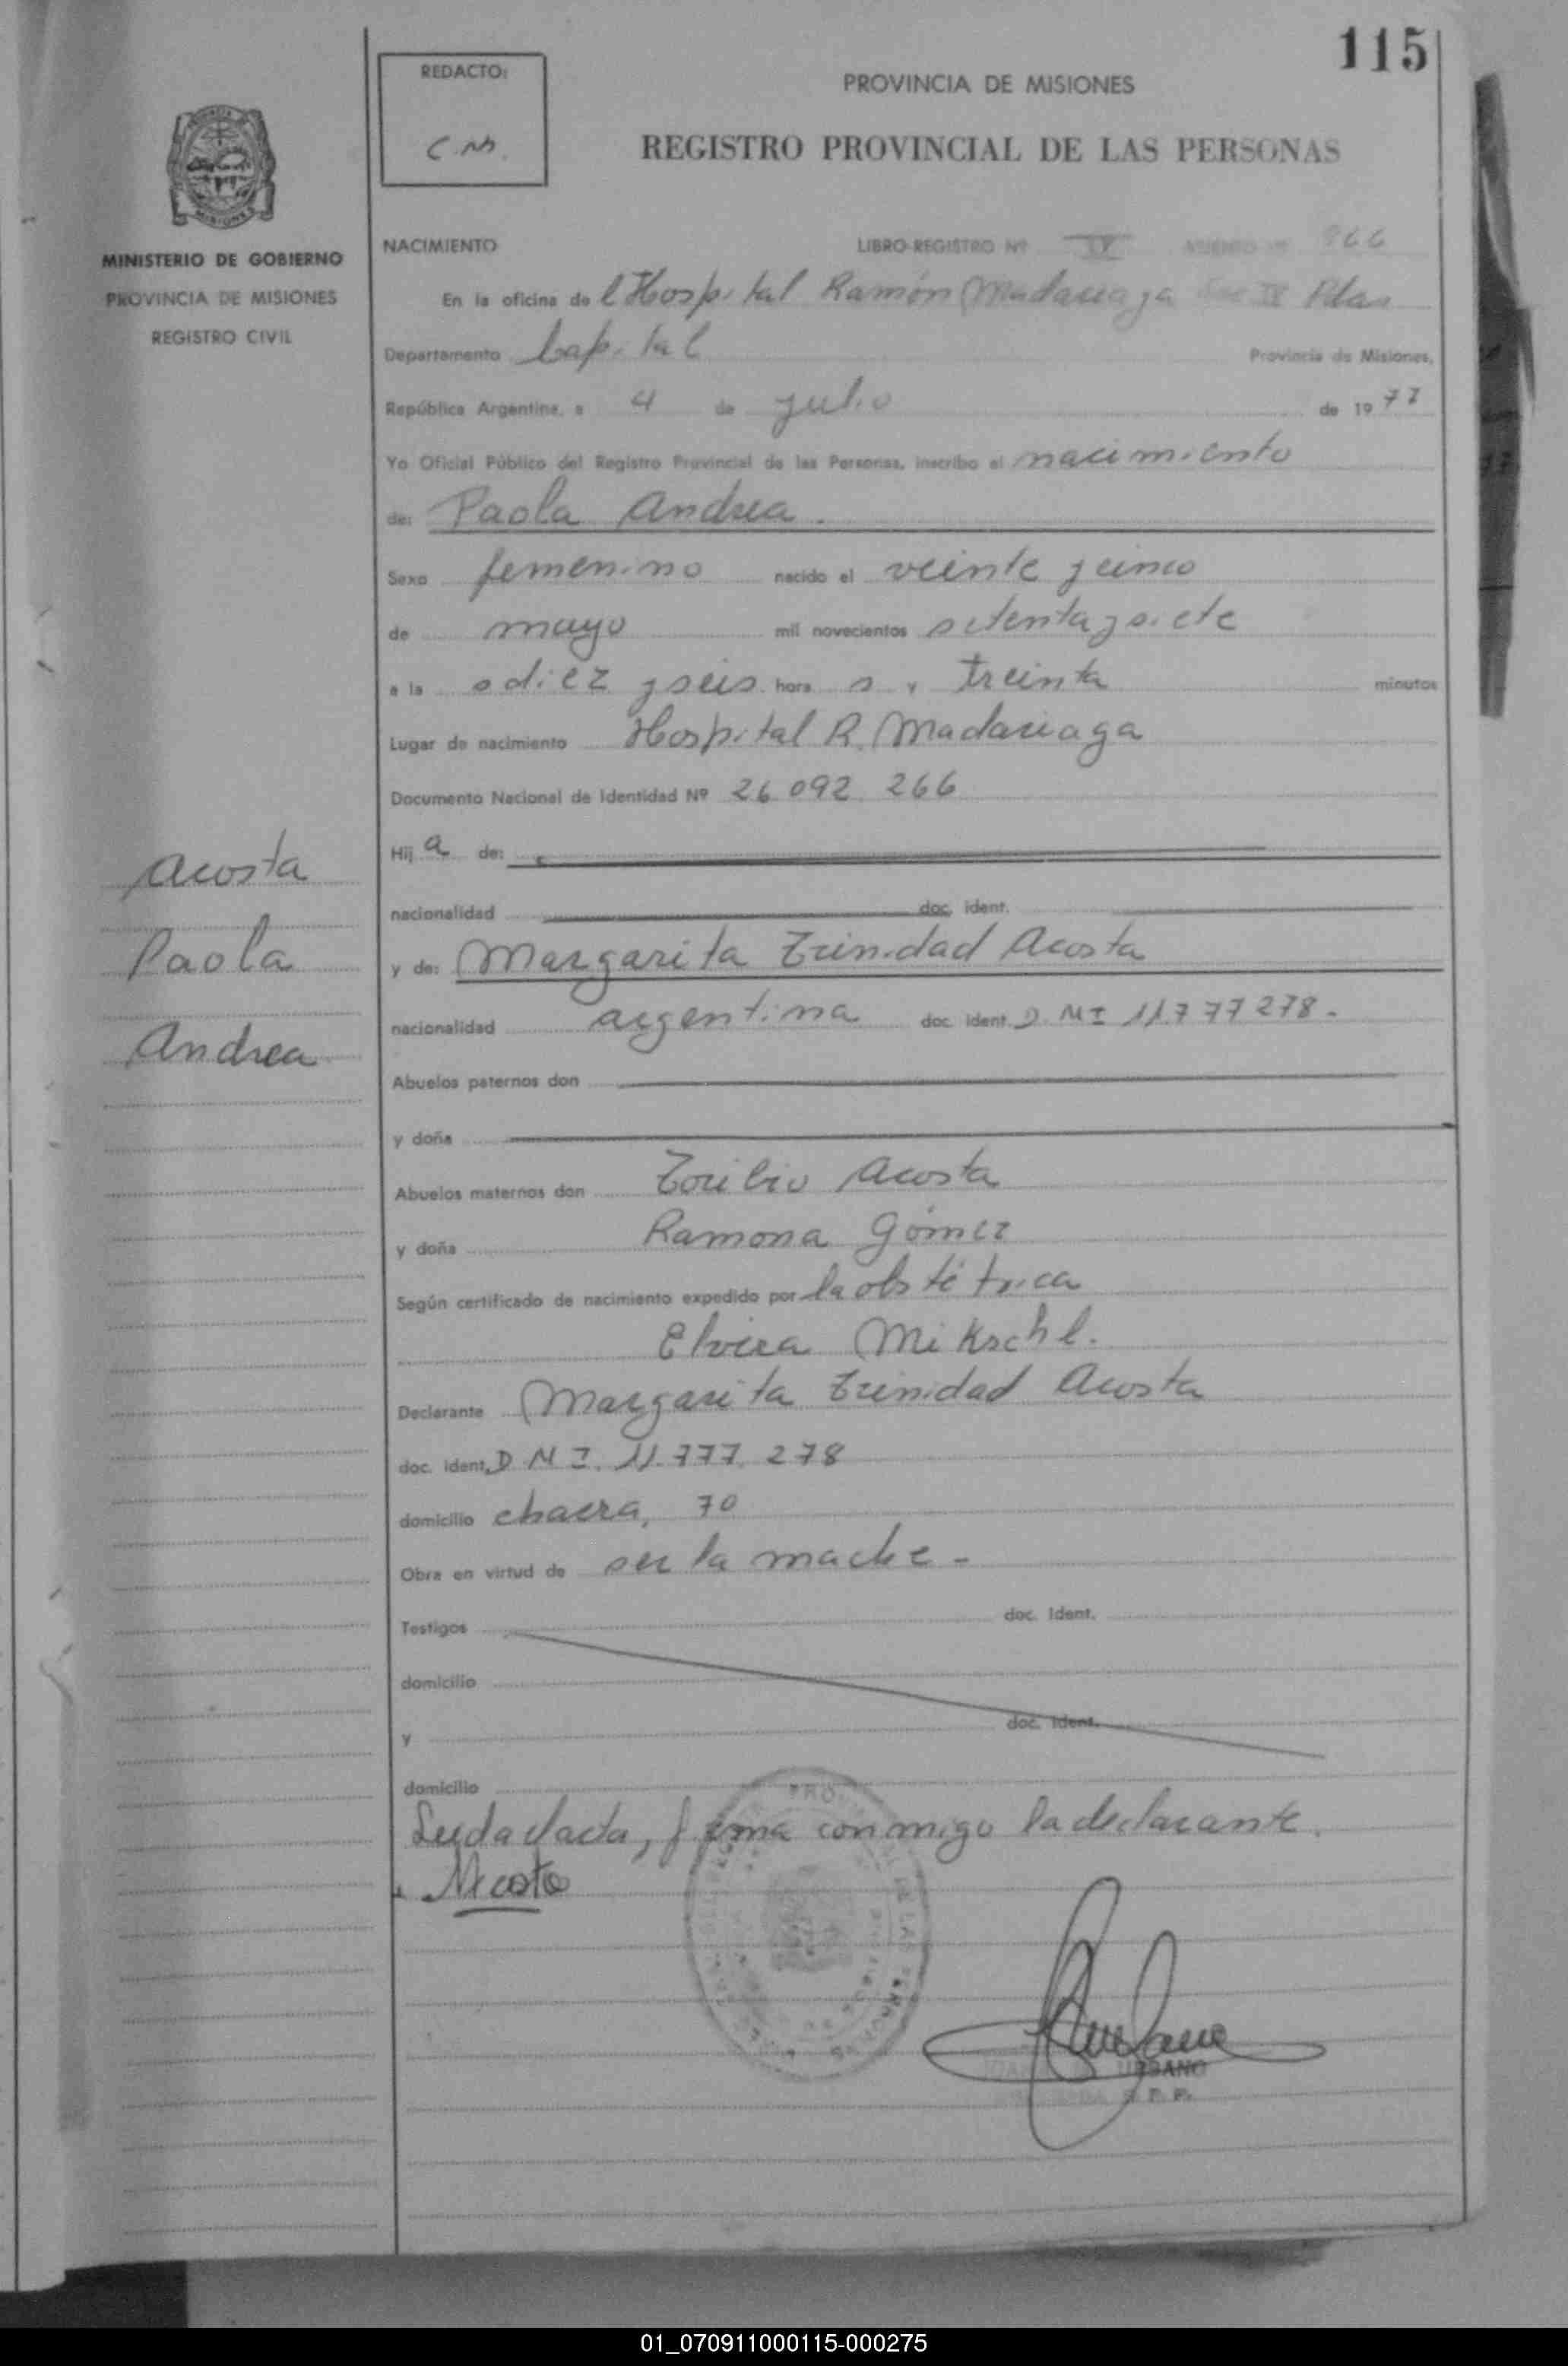 115
REDACTO:
C.M.
PROVINCIA DE MISIONES
REGISTRO PROVINCIAL DE LAS PERSONAS
MISIONES
MINISTERIO DE GOBIERNO
PROVINCIA DE MISIONES
REGISTRO CIVIL
Acosta
Paola
Andrea
NACIMIENTO LIBRO-REGISTRO Nº IV ASIENTO Nº 966
En la oficina de l Hospital Ramón Madariaga Sec IV Pdas
Departamento Capital Provincia de Misiones,
República Argentina, a 4 de julio de 19 77
Yo Oficial Público del Registro Provincial de las Personas, inscribo el nacimiento
de: Paola Andrea.
Sexo femenino nacido el veinte y cinco
de mayo mil novecientos setenta y siete
a la s diez y seis hora s y treinta minutos
Lugar de nacimiento Hospital R. Madariaga
Documento Nacional de Identidad Nº 26.092.266
Hij a de:
nacionalidad doc. ident.
y de: Margarita Trinidad Acosta
nacionalidad argentina doc. ident. D.N.I 11.777.278.-
Abuelos paternos don
y doña
Abuelos maternos don Toribio Acosta
y doña Ramona Gómez
Según certificado de nacimiento expedido por la obstétrica
Elvira Mikschl.
Declarante Margarita Trinidad Acosta
doc. ident. D.N.I. 11.777.278
domicilio chacra, 70
Obra en virtud de ser la madre.-
Testigos doc. ident.
domicilio
y doc. ident.
domicilio
Leyda elacta, firma conmigo la declarante.
Acosta
URBANO
01_070911000115-000275